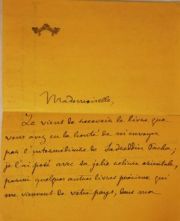 Mademoiselle,
Je viens de recevoir le livre que
vous avez eu la bonté de m'envoyer
par l'intermédiaire de Sadreddin Pacha;
je l'ai posé avec sa jolie reliure orientale,
parmi quelques autres livres précieux, qui
me viennent de votre pays, dans mon